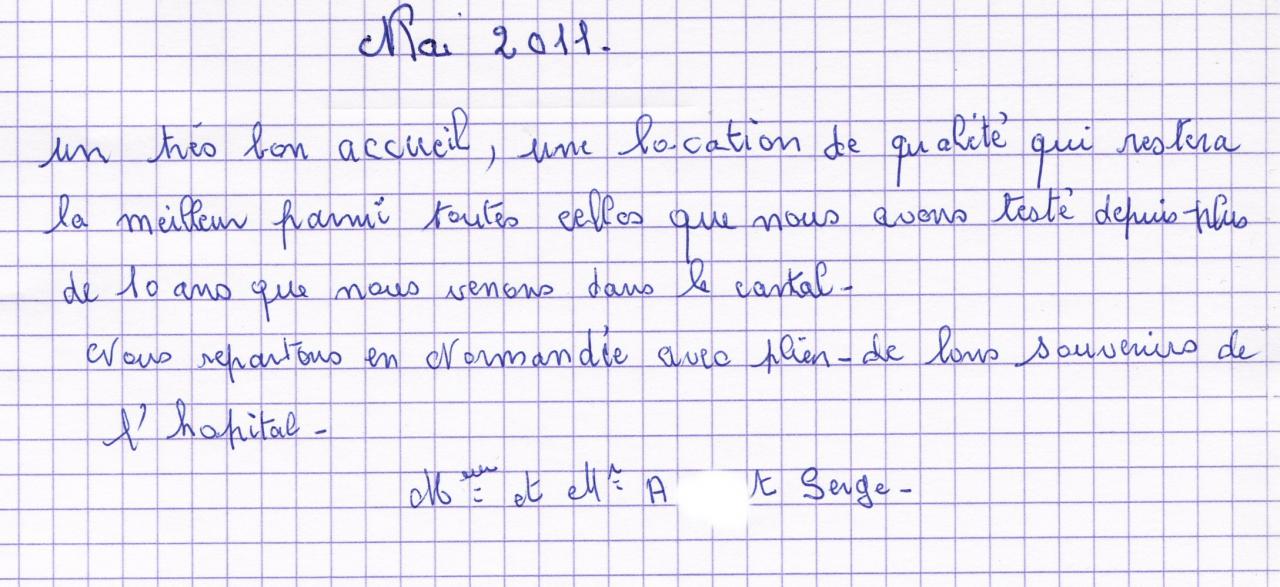 Mai 2011.
un très bon accueil, une location de qualité qui restera
la meilleur parmi toutes celles que nous avons testé depuis plus
de 10 ans que nous venons dans le cantal-
Nous repartons en Normandie avec plien-de bons souvenirs de
l'hopital-
Mme et Mr A t Serge-